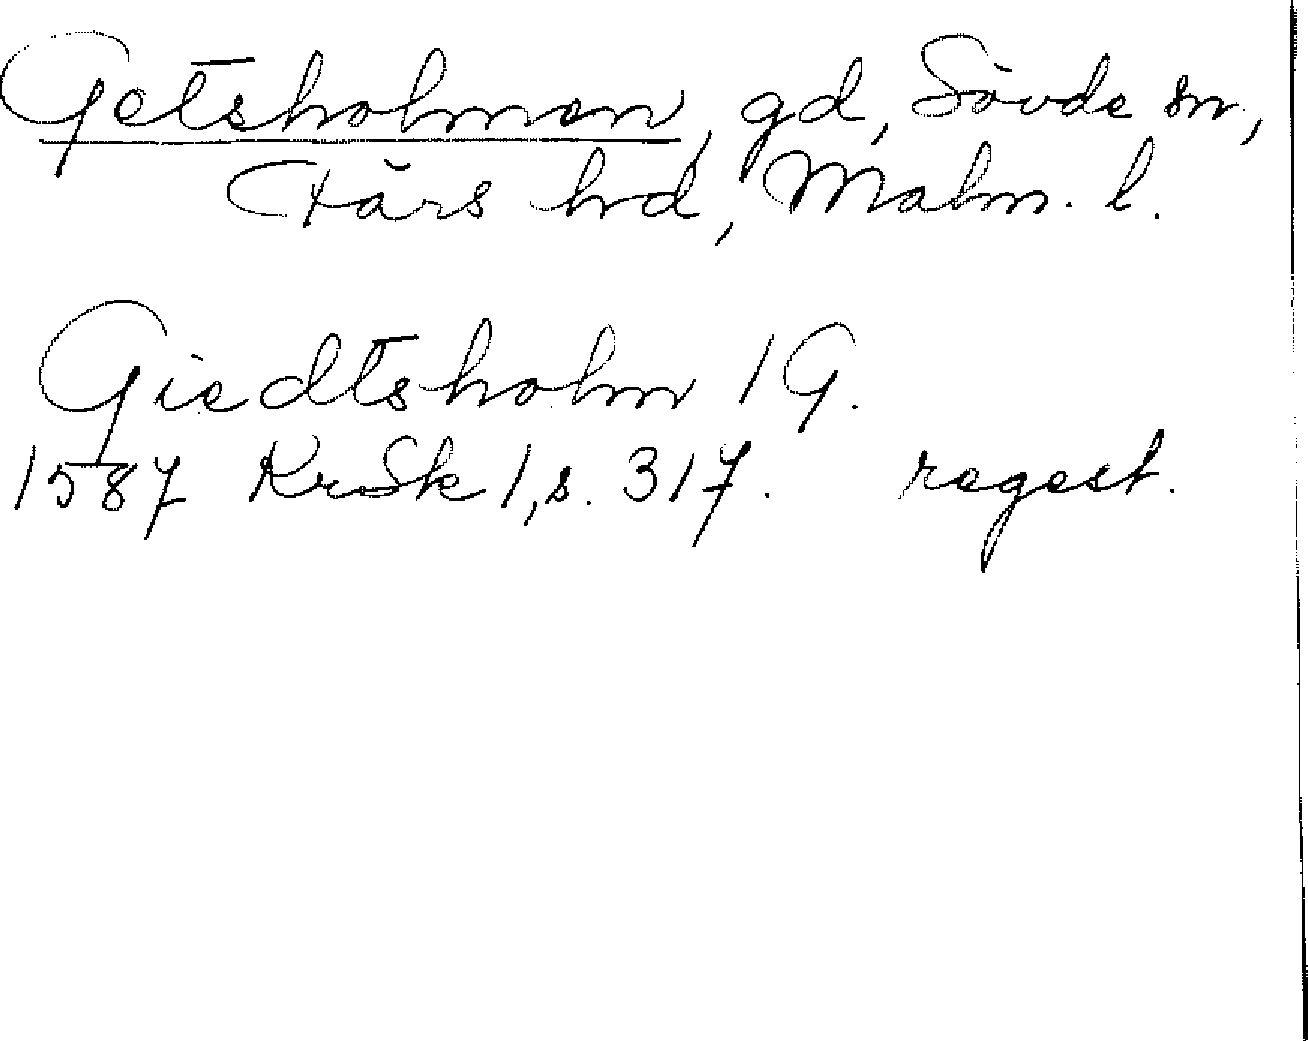 Getsholmen, gd, Sövde sn,
Färs hrd, Malm. l.
Giedtsholm 1 G.
1587 KrSk 1, s. 317. regest.